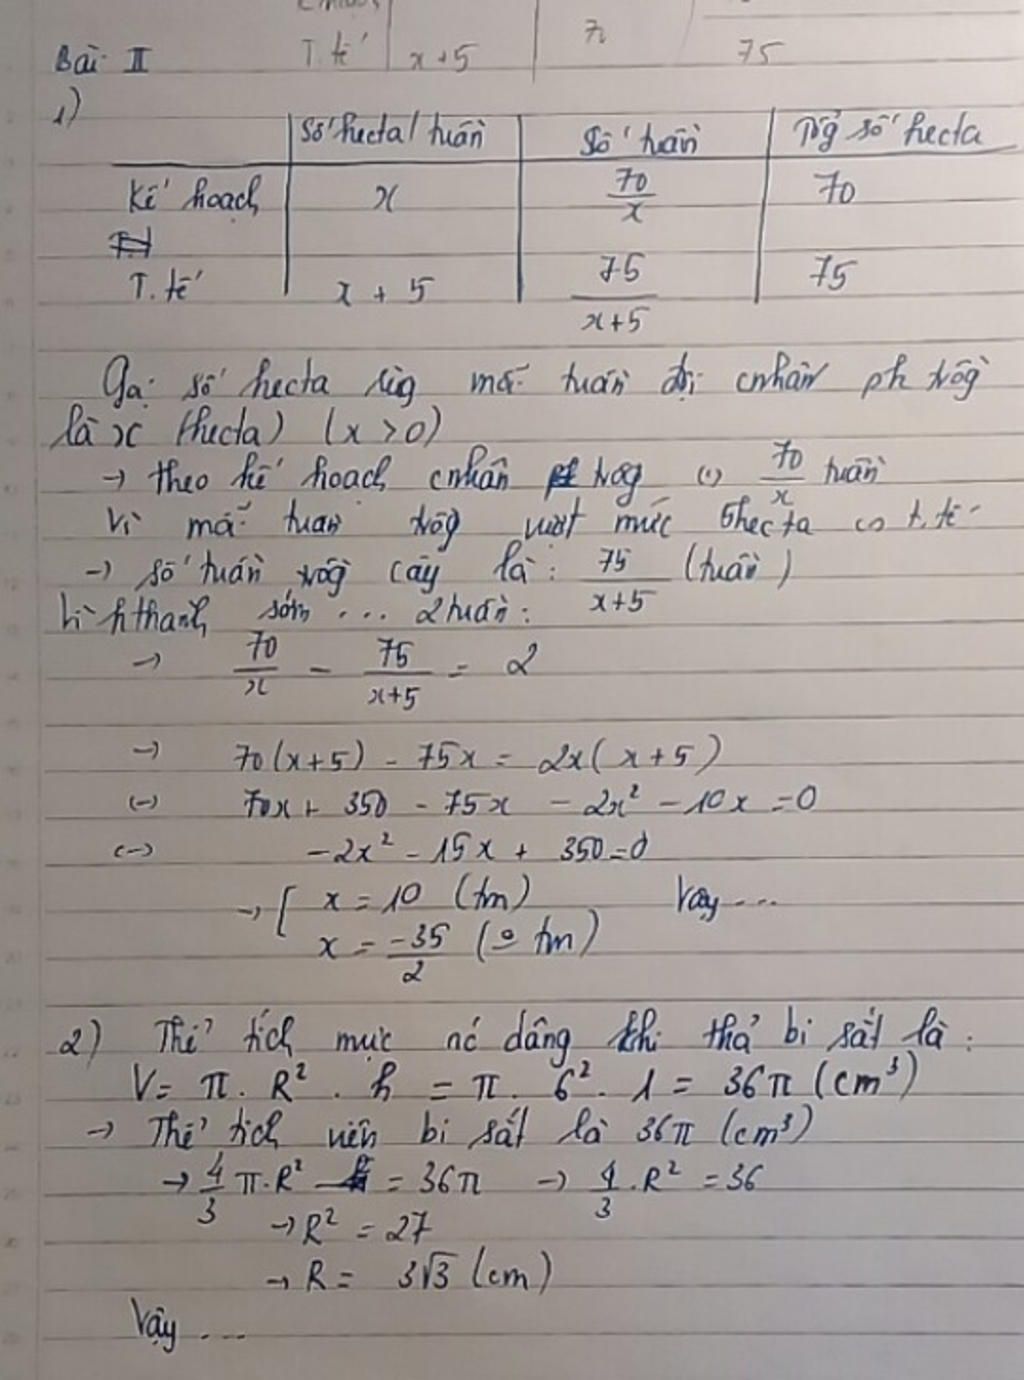 T.tế x+5 75
Bài II
1)
Số hecta/tuần Số tuần Tổg số hecta
Kế hoạch x 70/x 70
T.tế x + 5 75/(x+5) 75
Gọi số hecta rừg mỗi tuần đội cnhân ph trồg
là x (hecta) (x > 0)
→ theo kế hoạch cnhân trồg 70/x tuần
Vì mỗi tuần trồg vượt mức 5hecta so t.tế
→ số tuần trồg cây là: 75/(x+5) (tuần)
Vì hthành sớm ... 2 tuần:
→ 70/x - 75/(x+5) = 2
→ 70(x+5) - 75x = 2x(x+5)
(→) 70x + 350 - 75x - 2x² - 10x = 0
(→) -2x² - 15x + 350 = 0
→ [ x = 10 (tm) Vậy ...
x = -35/2 (o tm)
2) Thể tích mực nc dâng khi thả bi sắt là:
V = π . R² . h = π . 6² . 1 = 36π (cm³)
→ Thể tích viên bi sắt là 36π (cm³)
→ 4/3 π.R² = 36π → 4/3 . R² = 36
→ R² = 27
→ R = 3√3 (cm)
Vậy ...